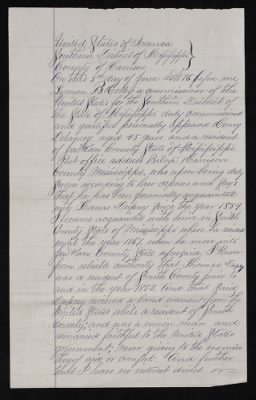 United States of America
Southern District of Mississippi
County of Harrison
On this 5th day of June 1876 before me
a commissioner of the
United States for the Southern District of
the State of Mississippi duly commissioned
and qualified personally appeared Henry
aged 45 years and a resident
of Jackson County State of Mississippi
Post office address Biloxi Harrison
County Mississippi, who upon being duly
sworn according to law deposes and says
that he has been personally acquainted
with since the year 1859
became acquainted with him in Smith
County State of Mississippi after he
until the year 1867 when he moved into
Jackson County State aforesaid I know
from reliable authority that
was a resident of Smith County prior to
and in the year 1852 and that said
received a land warrant from the
United States while a resident of Smith
County; and was a union man and
remained faithful to the United States
government; never giving to the enemies
thereof aid or comfort. And further
that I have no interest direct or